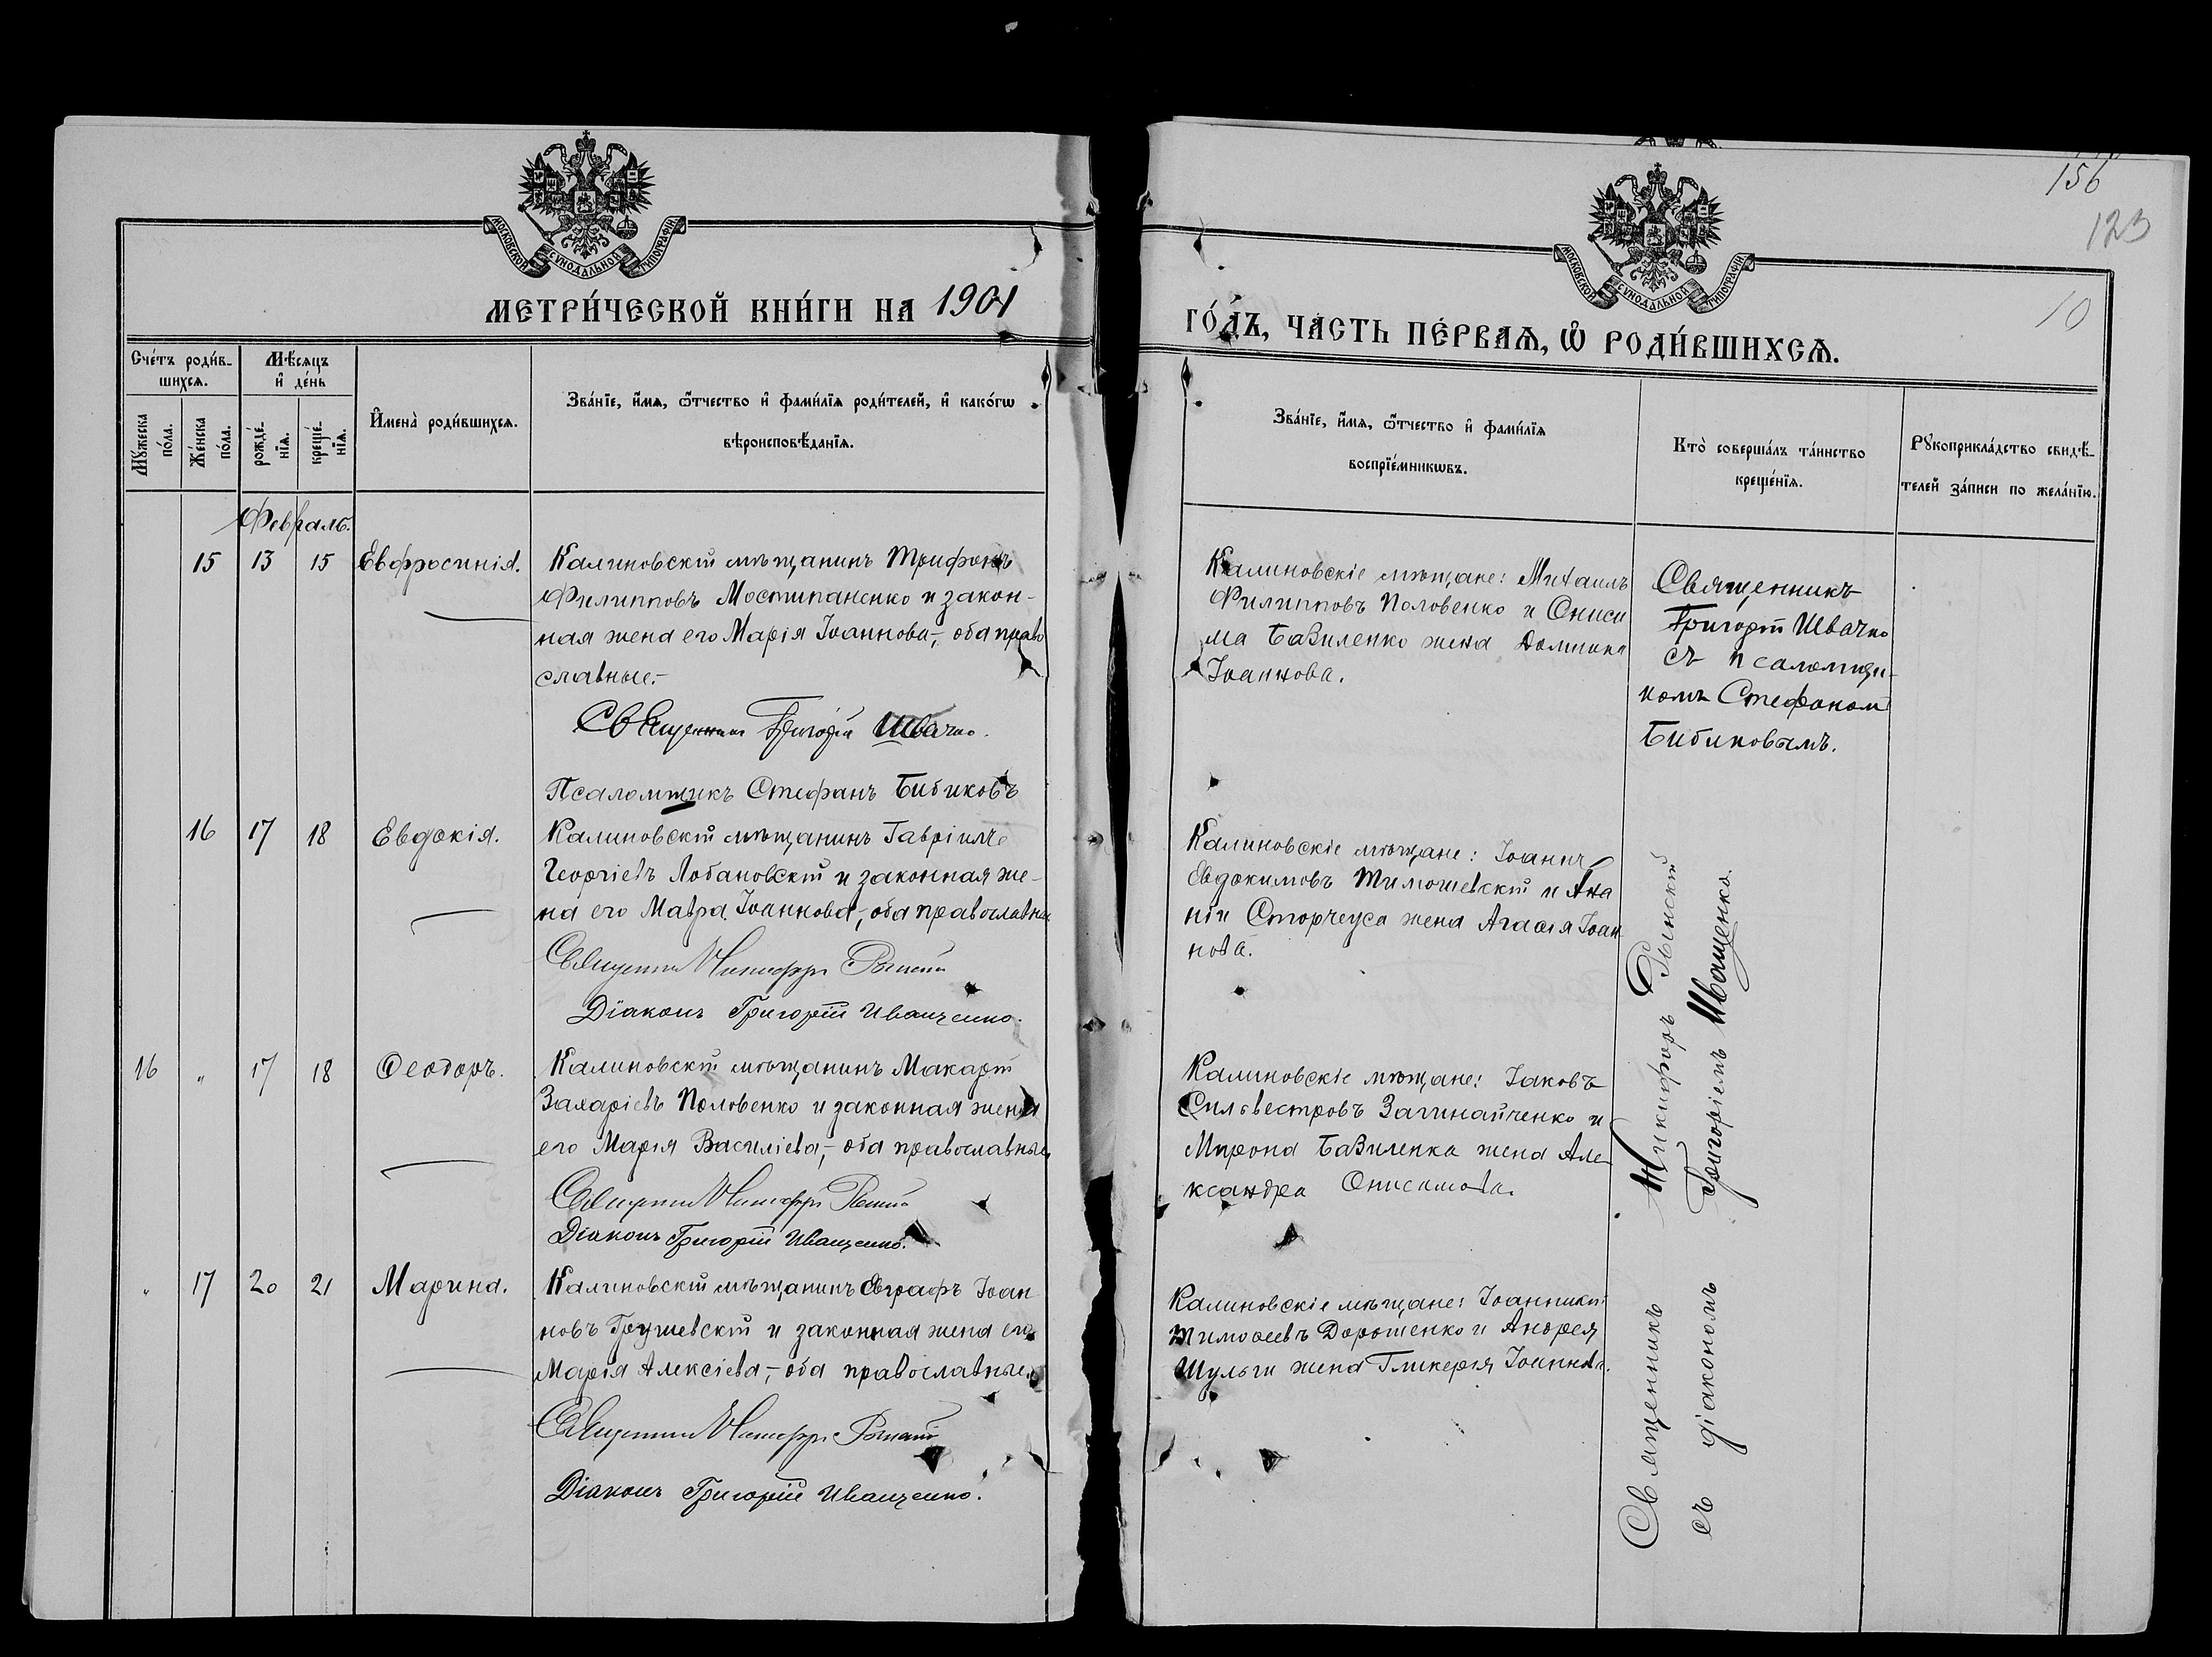 МОСКОВСКОЙ СѴНОДАЛЬНОЙ ТИПОГРАФІИ
МЕТРИ́ЧЕСКОЙ КНИ́ГИ НА 1901
Сче́тъ роди́в-
шихсѧ.
Мѣ́сяцъ
и҆ де́нь
Мꙋ́жеска
по́ла.
Же́нска
по́ла.
рожде́-
нїѧ.
креще́-
нїѧ.
И҆мена̀ роди́вшихсѧ.
Зва́нїе, и҆́мѧ, ѻ҆́тчество и҆ фами́лїѧ роди́телей, и҆ како́гѡ
вѣроисповѣ́данїѧ.
Февраль.
15 13 15 Евфросинія.
Калиновскій мѣщанинъ Трифонъ
Филипповъ Мостипаненко и закон-
ная жена его Марія Іоаннова,- оба право
славные.-
Священник Григорій Швачко.
Псаломщикъ Стефанъ Бибиковъ
16 17 18 Евдокія.
Калиновскій мѣщанинъ Гавріилъ
Георгіевъ Лобановскій и законная же-
на его Мавра Іоаннова,- оба православные
Священник Никифоръ
Діаконъ Григорій Иващенко.
16 " 17 18 Ѳеодоръ.
Калиновскій мѣщанинъ Макарій
Захаріевъ Половенко и законная жена
его Марія Василіева,- оба православные
Священник Никифоръ
Діаконъ Григорій Иващенко.
" 17 20 21 Марина.
Калиновскій мѣщанинъ Евграфъ Іоан
новъ Грушевскій и законная жена его
Марія Алексіева,- оба православные
Священник Никифоръ
Діаконъ Григорій Иващенко.
156
123
10
МОСКОВСКОЙ СѴНОДАЛЬНОЙ ТИПОГРАФІИ
ГО́ДЪ, ЧА́СТЬ ПЕ́РВАѦ, Ѡ҆ РОДИ́ВШИХСѦ.
Зва́нїе, и҆́мѧ, ѻ҆́тчество и҆ фами́лїѧ
воспрїе́мникѡвъ.
Кто̀ соверша́лъ та́инство
креще́нїѧ.
Рꙋкоприкла́дство свидѣ́-
телей за́писи по жела́нїю.
Калиновскіе мѣщане: Михаилъ
Филипповъ Половенко и Ониси
ма Базиленко жена Домника
Іоаннова.
Священникъ
Григорій Швачко
съ псаломщи-
комъ Стефаном
Бибиковымъ.
Калиновскіе мѣщане: Іоаннъ
Евдокимовъ Тимошевскій и Ана
ніи Сторчеуса жена Агафія Іоан
нова.
Калиновскіе мѣщане: Іаковъ
Сильвестровъ Загинайченко и
Мирона Базиленка жена Але-
ксандра Онисимова.
Калиновскіе мѣщане: Іоанникій
Тимоѳеевъ Дорошенко и Андрея
Шульги жена Гликерія Іоаннова.
Священникъ Никифоръ Рынскій
съ діакономъ Григоріемъ Иващенко.